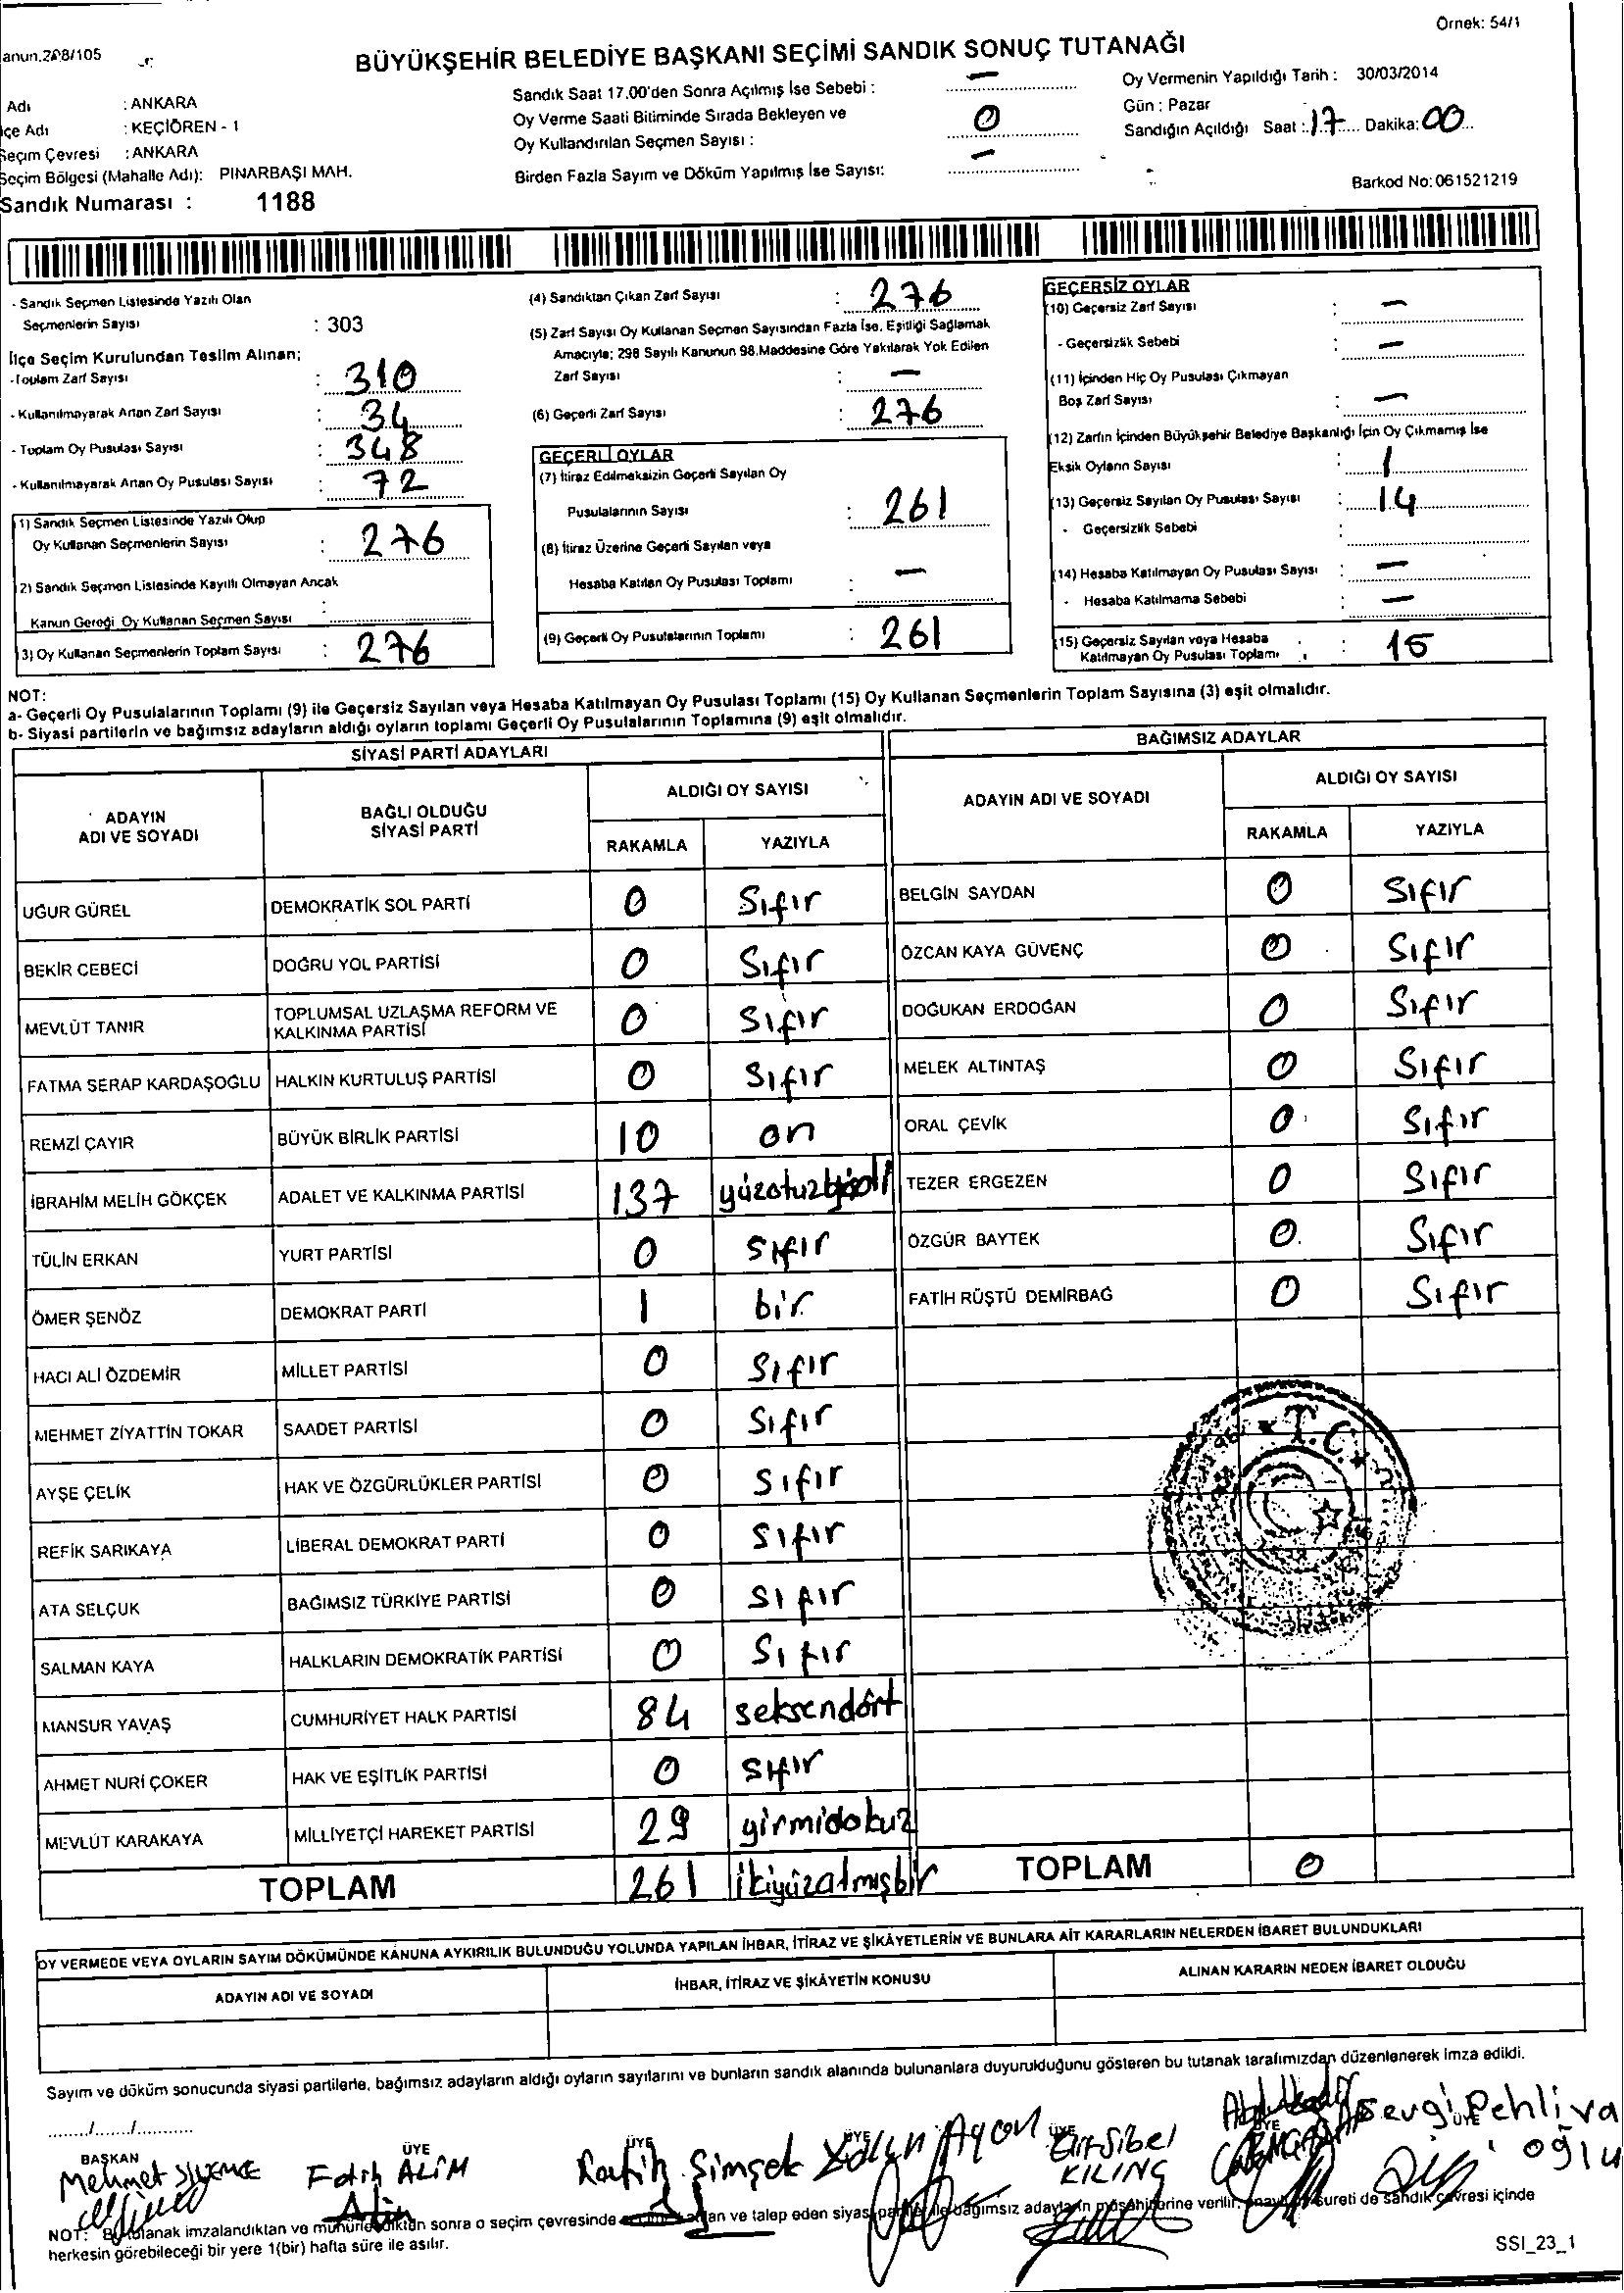 Örnek: 54/1
anun.298/105
BÜYÜKŞEHİR BELEDİYE BAŞKANI SEÇİMİ SANDIK SONUÇ TUTANAĞI
Adı : ANKARA
lçe Adı : KEÇİÖREN - 1
Seçim Çevresi : ANKARA
Seçim Bölgesi (Mahalle Adı): PINARBAŞI MAH.
Sandık Numarası : 1188
Sandık Saat 17.00'den Sonra Açılmış İse Sebebi : —
Oy Verme Saati Bitiminde Sırada Bekleyen ve
Oy Kullandırılan Seçmen Sayısı : 0
Birden Fazla Sayım ve Döküm Yapılmış İse Sayısı: —
Oy Vermenin Yapıldığı Tarih : 30/03/2014
Gün : Pazar
Sandığın Açıldığı Saat : 17 Dakika: 00
Barkod No: 061521219
- Sandık Seçmen Listesinde Yazılı Olan
Seçmenlerin Sayısı : 303
İlçe Seçim Kurulundan Teslim Alınan;
-Toplam Zarf Sayısı : 310
- Kullanılmayarak Artan Zarf Sayısı : 34
- Toplam Oy Pusulası Sayısı : 348
- Kullanılmayarak Artan Oy Pusulası Sayısı : 72
1) Sandık Seçmen Listesinde Yazılı Olup
Oy Kullanan Seçmenlerin Sayısı : 276
2) Sandık Seçmen Listesinde Kayıtlı Olmayan Ancak
Kanun Gereği Oy Kullanan Seçmen Sayısı :
3) Oy Kullanan Seçmenlerin Toplam Sayısı : 276
(4) Sandıktan Çıkan Zarf Sayısı : 276
(5) Zarf Sayısı Oy Kullanan Seçmen Sayısından Fazla İse, Eşitliği Sağlamak
Amacıyla; 298 Sayılı Kanunun 98.Maddesine Göre Yakılarak Yok Edilen
Zarf Sayısı : —
(6) Geçerli Zarf Sayısı : 276
GEÇERLİ OYLAR
(7) İtiraz Edilmeksizin Geçerli Sayılan Oy
Pusulalarının Sayısı : 261
(8) İtiraz Üzerine Geçerli Sayılan veya
Hesaba Katılan Oy Pusulası Toplamı : —
(9) Geçerli Oy Pusulalarının Toplamı : 261
GEÇERSİZ OYLAR
(10) Geçersiz Zarf Sayısı : —
- Geçersizlik Sebebi : —
(11) İçinden Hiç Oy Pusulası Çıkmayan
Boş Zarf Sayısı : —
(12) Zarfın İçinden Büyükşehir Belediye Başkanlığı İçin Oy Çıkmamış İse
Eksik Oyların Sayısı : 1
(13) Geçersiz Sayılan Oy Pusulası Sayısı : 14
- Geçersizlik Sebebi :
(14) Hesaba Katılmayan Oy Pusulası Sayısı : —
- Hesaba Katılmama Sebebi : —
(15) Geçersiz Sayılan veya Hesaba
Katılmayan Oy Pusulası Toplamı : 15
NOT:
a- Geçerli Oy Pusulalarının Toplamı (9) ile Geçersiz Sayılan veya Hesaba Katılmayan Oy Pusulası Toplamı (15) Oy Kullanan Seçmenlerin Toplam Sayısına (3) eşit olmalıdır.
b- Siyasi partilerin ve bağımsız adayların aldığı oyların toplamı Geçerli Oy Pusulalarının Toplamına (9) eşit olmalıdır.
SİYASİ PARTİ ADAYLARI
ADAYIN ADI VE SOYADI BAĞLI OLDUĞU SİYASİ PARTİ ALDIĞI OY SAYISI
RAKAMLA YAZIYLA
UĞUR GÜREL DEMOKRATİK SOL PARTİ 0 Sıfır
BEKİR CEBECİ DOĞRU YOL PARTİSİ 0 Sıfır
MEVLÜT TANIR TOPLUMSAL UZLAŞMA REFORM VE KALKINMA PARTİSİ 0 Sıfır
FATMA SERAP KARDAŞOĞLU HALKIN KURTULUŞ PARTİSİ 0 Sıfır
REMZİ ÇAYIR BÜYÜK BİRLİK PARTİSİ 10 on
İBRAHİM MELİH GÖKÇEK ADALET VE KALKINMA PARTİSİ 137 yüzotuzyedi
TÜLİN ERKAN YURT PARTİSİ 0 Sıfır
ÖMER ŞENÖZ DEMOKRAT PARTİ 1 bir
HACI ALİ ÖZDEMİR MİLLET PARTİSİ 0 Sıfır
MEHMET ZİYATTİN TOKAR SAADET PARTİSİ 0 Sıfır
AYŞE ÇELİK HAK VE ÖZGÜRLÜKLER PARTİSİ 0 Sıfır
REFİK SARIKAYA LİBERAL DEMOKRAT PARTİ 0 Sıfır
ATA SELÇUK BAĞIMSIZ TÜRKİYE PARTİSİ 0 Sıfır
SALMAN KAYA HALKLARIN DEMOKRATİK PARTİSİ 0 Sıfır
MANSUR YAVAŞ CUMHURİYET HALK PARTİSİ 84 seksendört
AHMET NURİ ÇOKER HAK VE EŞİTLİK PARTİSİ 0 Sıfır
MEVLÜT KARAKAYA MİLLİYETÇİ HAREKET PARTİSİ 29 yirmidokuz
TOPLAM 261 ikiyüzatmışbir
BAĞIMSIZ ADAYLAR
ADAYIN ADI VE SOYADI ALDIĞI OY SAYISI
RAKAMLA YAZIYLA
BELGİN SAYDAN 0 Sıfır
ÖZCAN KAYA GÜVENÇ 0 Sıfır
DOĞUKAN ERDOĞAN 0 Sıfır
MELEK ALTINTAŞ 0 Sıfır
ORAL ÇEVİK 0 Sıfır
TEZER ERGEZEN 0 Sıfır
ÖZGÜR BAYTEK 0 Sıfır
FATİH RÜŞTÜ DEMİRBAĞ 0 Sıfır
T.C.
TOPLAM 0
OY VERMEDE VEYA OYLARIN SAYIM DÖKÜMÜNDE KANUNA AYKIRILIK BULUNDUĞU YOLUNDA YAPILAN İHBAR, İTİRAZ VE ŞİKÂYETLERİN VE BUNLARA AİT KARARLARIN NELERDEN İBARET BULUNDUKLARI
ADAYIN ADI VE SOYADI İHBAR, İTİRAZ VE ŞİKÂYETİN KONUSU ALINAN KARARIN NEDEN İBARET OLDUĞU
Sayım ve döküm sonucunda siyasi partilerle, bağımsız adayların aldığı oyların sayılarını ve bunların sandık alanında bulunanlara duyurulduğunu gösteren bu tutanak tarafımızdan düzenlenerek imza edildi.
....../....../............
BAŞKAN ÜYE ÜYE ÜYE ÜYE ÜYE ÜYE
Mehmet Fatih ALİM Rafih Şimşek Elif Sibel KILINÇ Sevgi Pehlivanoğlu
NOT: Bu tutanak imzalandıktan ve mühürlendikten sonra o seçim çevresinde ve talep eden siyasi partiler ile bağımsız adayların müşahitlerine verilir, sureti de sandık çevresi içinde
herkesin görebileceği bir yere 1(bir) hafta süre ile asılır.
SSI_23_1